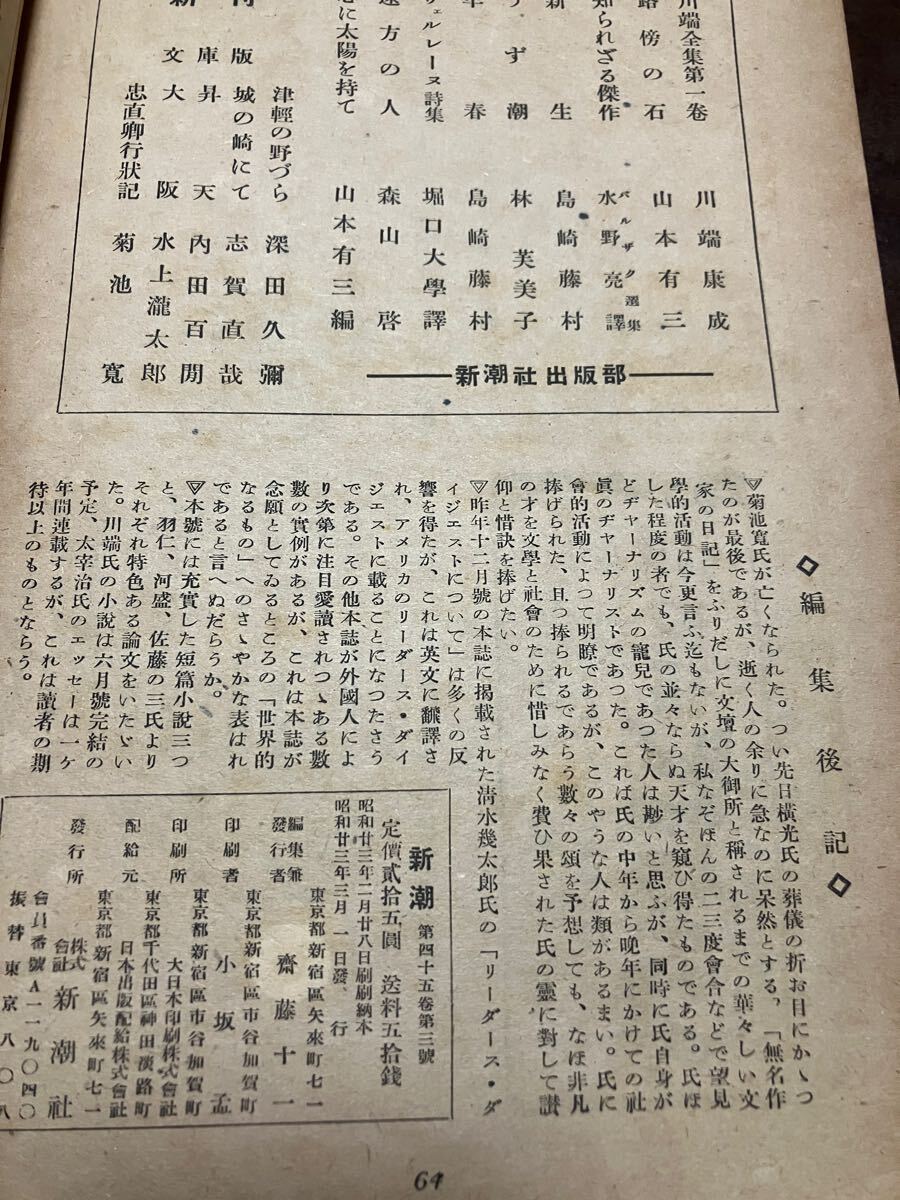 川端全集第一卷 川端康成
路傍の石 山本有三
知られざる傑作 バルザク選集 水野亮譯
新生 島崎藤村
うず潮 林芙美子
春 島崎藤村
ヴェルレーヌ詩集 堀口大學譯
遠方の人 森山啓
心に太陽を持て 山本有三編
津輕の野づら 深田久彌
城の崎にて 志賀直哉
昇天 內田百閒
大阪 水上瀧太郎
忠直卿行狀記 菊池寬
版
庫
文
新潮社出版部
◇編集後記◇
▽菊池寬氏が亡くなられた。つい先日橫光氏の葬儀の折お目にかゝつ
たのが最後であるが、逝く人の余りに急なのに呆然とする。「無名作
家の日記」をふりだしに文壇の大御所と稱されるまでの華々しい文
學的活動は今更言ふ迄もないが、私なぞほんの二三度會合などで望見
した程度の者でも、氏の並々ならぬ天才を窺ひ得たものである。氏ほ
どヂャーナリズムの寵兒であつた人は尠いと思ふが、同時に氏自身が
眞のヂャーナリストであつた。これは氏の中年から晚年にかけての社
會的活動によつて明瞭であるが、このやうな人は類があるまい。氏に
捧げられた、且つ捧られるであらう數々の頌を予想しても、なほ非凡
の才を文學と社會のために惜しみなく費ひ果された氏の靈に對して讃
仰と惜訣を捧げたい。
▽昨年十二月號の本誌に揭載された淸水幾太郞氏の「リーダース・ダ
イジェストについて」は多くの反
響を得たが、これは英文に飜譯さ
れ、アメリカのリーダース・ダイ
ジェストに載ることになつたさう
である。その他本誌が外國人によ
り次第に注目愛讀されつゝある數
數の實例があるが、これは本誌が
念願としてゐるところの「世界的
なるもの」へのさゝやかな表はれ
であると言へぬだらうか。
▽本號には充實した短篇小說三つ
と、羽仁、河盛、佐藤の三氏より
それぞれ特色ある論文をいたゞい
た。川端氏の小說は六月號完結の
予定、太宰治氏のエッセーは一ケ
年間連載するが、これは讀者の期
待以上のものとならう。
新潮 第四十五卷第三號
定價貳拾五圓 送料五拾錢
昭和廿三年二月廿八日印刷納本
昭和廿三年三月一日發行
東京都新宿區矢來町七一
編集兼發行者 齋藤十一
東京都新宿區市谷加賀町
印刷者 小坂孟
東京都新宿區市谷加賀町
印刷所 大日本印刷株式會社
東京都千代田區神田淡路町
配給元 日本出版配給株式會社
東京都新宿區矢來町七一
發行所 株式會社新潮社
會員番號A一一九〇四〇
振替東京八〇八
64